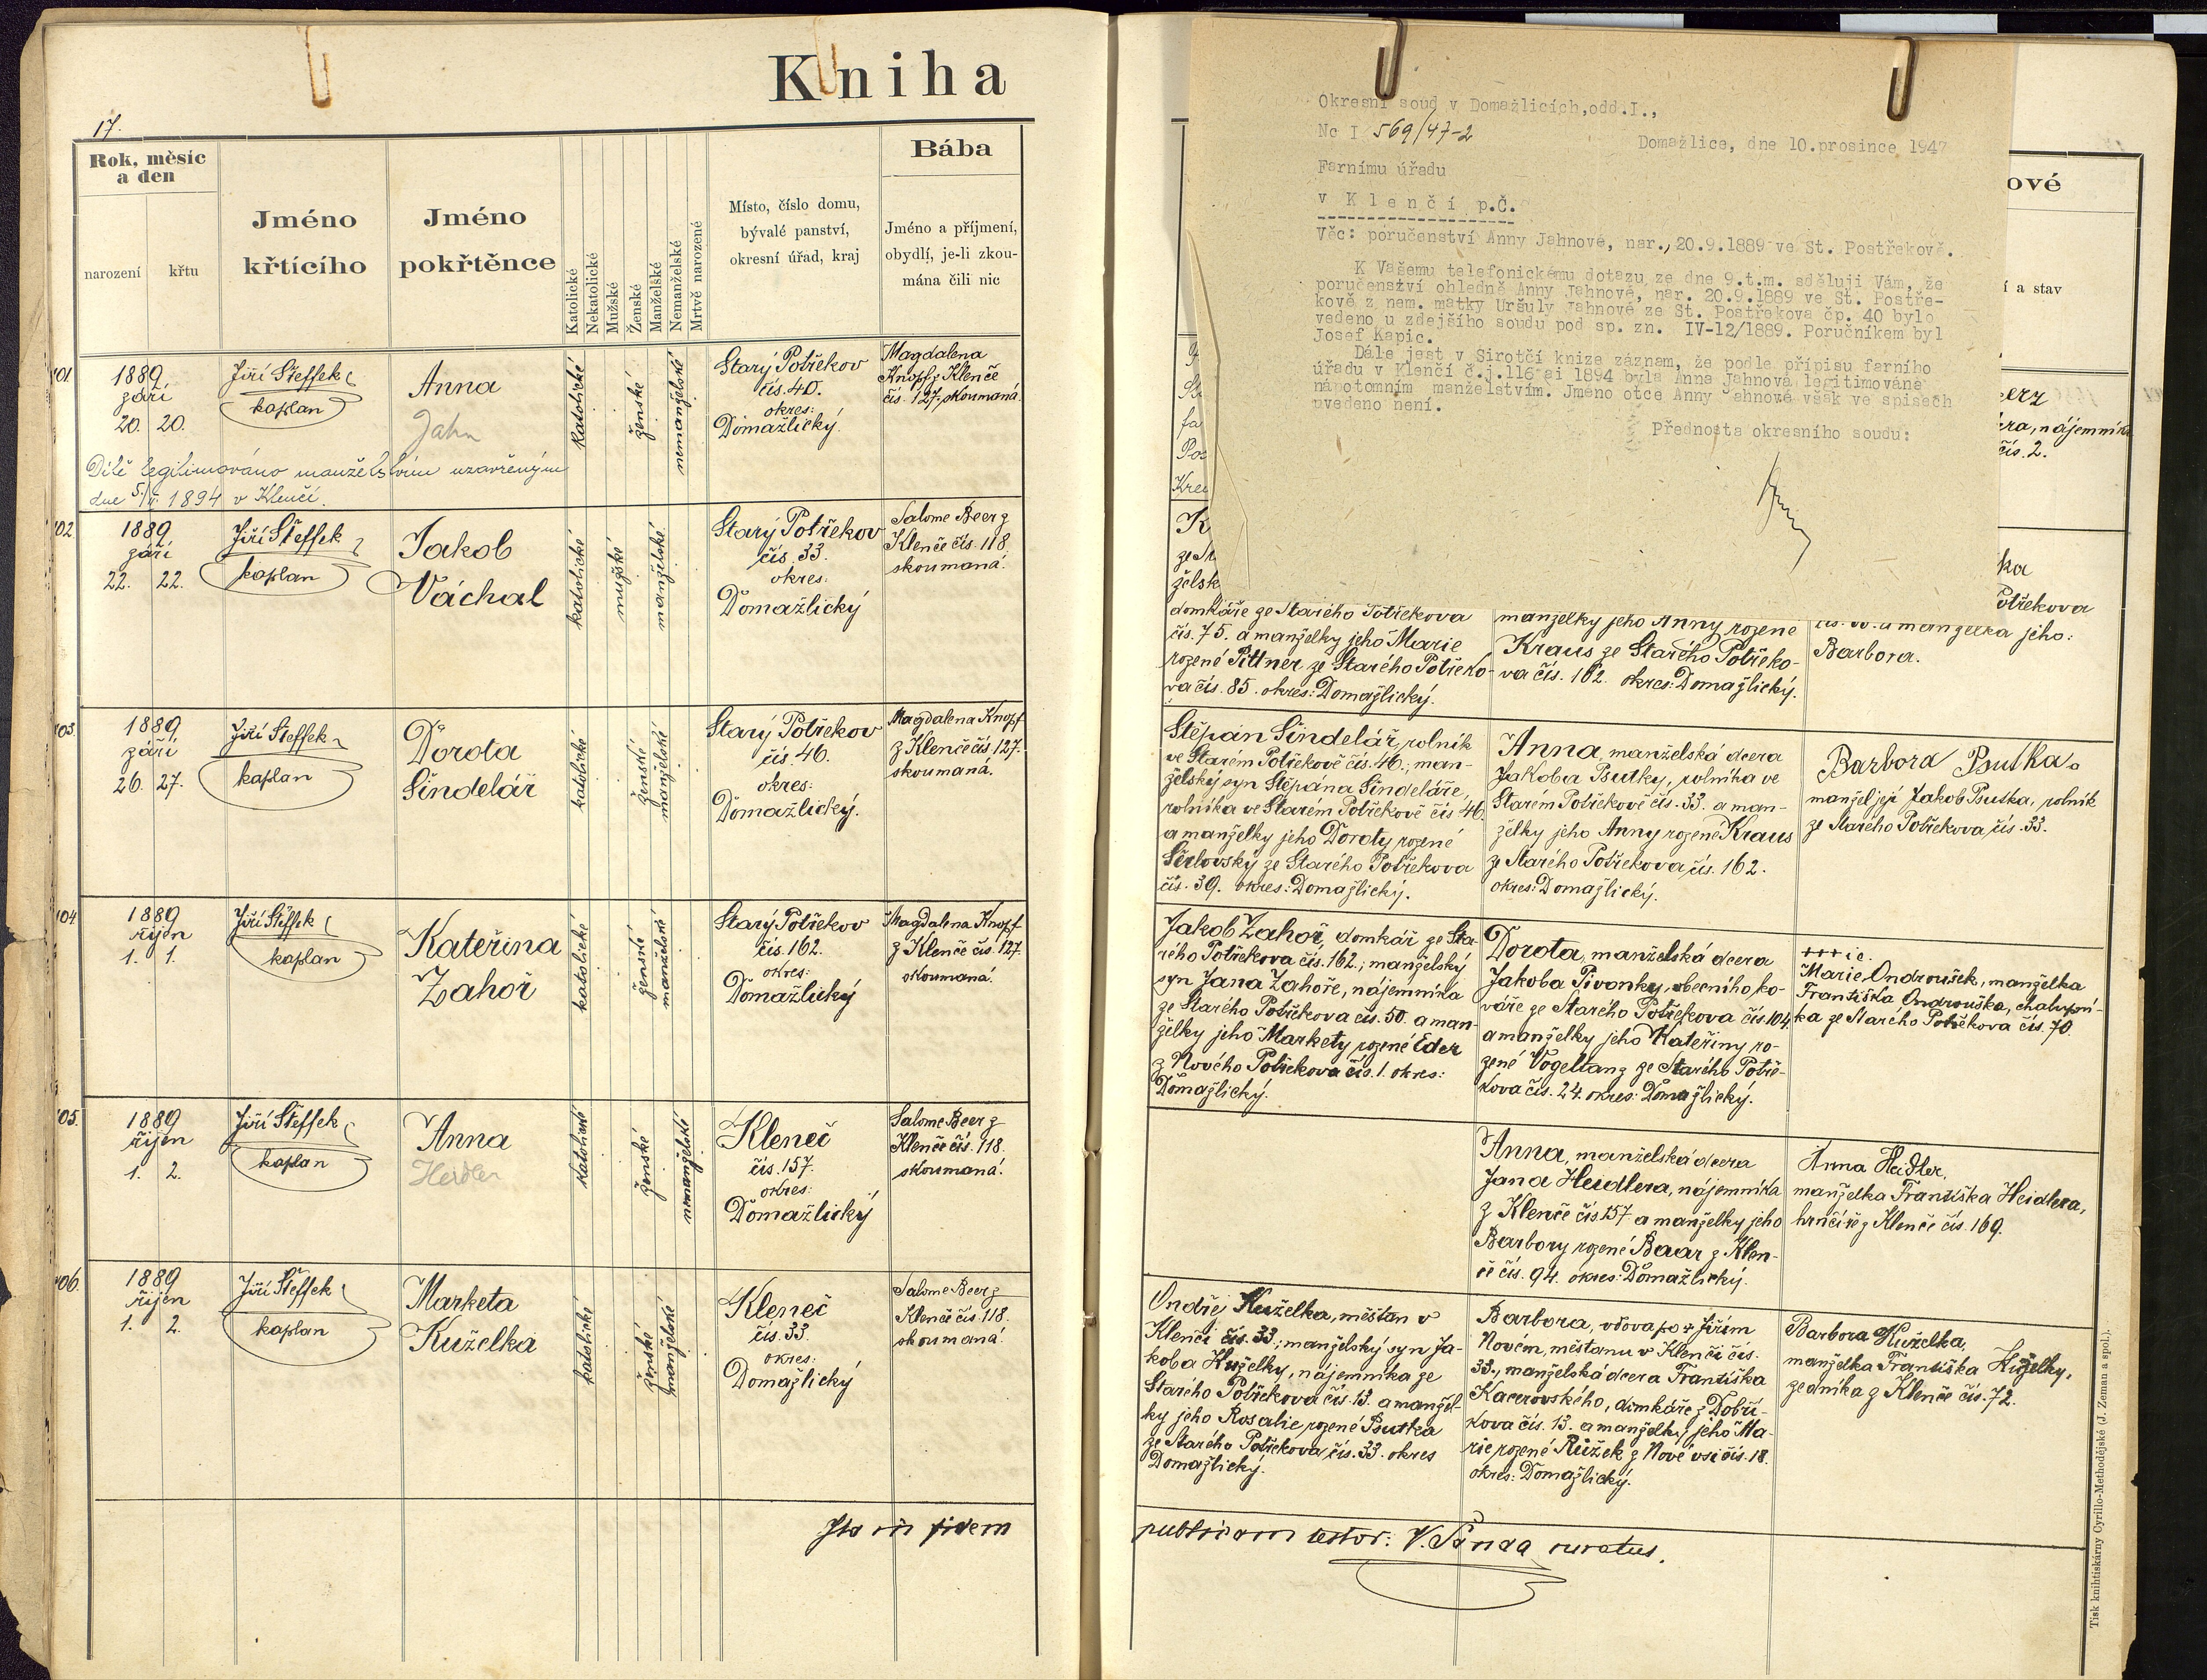 Kniha
17.
Rok, měsíc
a den
narození
křtu
Jméno
křtícího
Jméno
pokřtěnce
Katolické
Nekatolické
Mužské
Ženské
Manželské
Nemanželské
Mrtvě narozené
Místo, číslo domu,
bývalé panství,
okresní úřad, kraj
Bába
Jméno a příjmení,
obydlí, je-li zkou-
mána čili nic
101.
1889
září
20. 20.
Jiří Šteffek
kaplan
Anna
Jahn
katolické
ženské
nemanželské
Starý Potřekov
čís. 40.
okres:
Domažlický.
Magdalena
Knopf z Klenče
čís. 127, skoumaná.
Dítě legitimováno manželstvím uzavřeným
dne 5/6. 1894 v Klenčí.
102
1889
září
22. 22.
Jiří Šteffek
kaplan
Jakob
Váchal
katolické
mužské
manželské
Starý Potřekov
čís. 33.
okres:
Domažlický
Salome Beer z
Klenče čís. 118.
skoumaná.
103.
1889
září
26. 27.
Jiří Šteffek
kaplan
Dorota
Šindelář
katolické
ženské
manželské
Starý Potřekov
čís. 46.
okres:
Domažlický.
Magdalena Knopf
z Klenče čís. 127.
skoumaná.
104
1889
říjen
1. 1.
Jiří Šteffek
kaplan
Kateřina
Zahoř
katolické
ženské
manželské
Starý Potřekov
čís. 162.
okres:
Domažlický
Magdalena Knopf
z Klenče čís. 127.
skoumaná.
105.
1889
říjen
1. 2.
Jiří Šteffek
kaplan
Anna
Heidler
katolické
ženské
nemanželské
Kleneč
čís. 157.
okres:
Domažlický
Salome Beer z
Klenče čís. 118.
skoumaná.
106.
1889
říjen
1. 2.
Jiří Šteffek
kaplan
Marketa
Kuželka
katolické
ženské
manželské
Kleneč
čís. 33.
okres:
Domažlický
Salome Beer z
Klenče čís. 118.
skoumaná.
Ita in fidem
Okresní soud v Domažlicích,odd.I.,
Nc I 569/47-2
Domažlice, dne 10.prosince 1947
Farnímu úřadu
v Klenčí p.Č.
Věc: poručenství Anny Jahnové, nar., 20.9.1889 ve St. Postřekově.
K Vašemu telefonickému dotazu ze dne 9.t.m. sděluji Vám, že
poručenství ohledně Anny Jahnové, nar. 20.9.1889 ve St. Postře-
kově z nem. matky Uršuly Jahnové ze St. Postřekova čp. 40 bylo
vedeno u zdejšího soudu pod sp. zn. IV-12/1889. Poručníkem byl
Josef Kapic.
Dále jest v Sirotčí knize záznam, že podle přípisu farního
úřadu v Klenčí č.j.116 ai 1894 byla Anna Jahnová legitimována
nápotomním manželstvím. Jméno otce Anny Jahnové však ve spisech
uvedeno není.
Přednosta okresního soudu:
ové
í a stav
nájemníka
čís. 2.
ka
otřekova
a manželka jeho:
Barbora.
domkáře ze Starého Potřekova
čís. 75. a manželky jeho Marie
rozené Pittner ze Starého Potřeko-
va čís. 85. okres: Domažlický.
manželky jeho Anny rozené
Kraus ze Starého Potřeko-
va čís. 162. okres: Domažlický.
Štěpán Šindelář, rolník
ve Starém Potřekově čís. 46.; man-
želský syn Štěpána Šindeláře,
rolníka ve Starém Potřekově čís. 46.
a manželky jeho Doroty rozené
ze Starého Potřekova
čís. 39. okres: Domažlický.
Anna, manželská dcera
Jakoba Psutky, rolníka ve
Starém Potřekově čís. 33. a man-
želky jeho Anny rozené Kraus
ze Starého Potřekova, čís. 162.
okres: Domažlický.
Barbora Psutka,
manžel její Jakob Psutka, rolník
ze Starého Potřekova, čís. 33.
Jakob Zahoř, domkář ze Sta-
rého Potřekova čís. 162.; manželský
syn Jana Zahoře, nájemníka
ze Starého Potřekova čís. 50. a man-
želky jeho Markety rozené Eder
z Nového Potřekova čís. 1. okres:
Domažlický.
Dorota, manželská dcera
Jakoba Pivonky, obecního ko-
váře ze Starého Potřekova čís. 104.
a manželky jeho Kateřiny ro-
zené Vogeltanz ze Starého Potře-
kova čís. 24. okres: Domažlický.
Marie Ondroušek, manželka
Františka Ondrouška, chalupní-
ka ze Starého Potřekova čís. 70.
Anna, manželská dcera
Jana Heidlera, nájemníka
z Klenče čís. 157 a manželky jeho
Barbory rozené Baar z Klen-
če čís. 94. okres: Domažlický.
Anna Heidler,
manželka Františka Heidlera,
hrnčíře z Klenče čís. 169.
Ondřej Kuželka, měšťan v
Klenčí čís. 33; manželský syn Ja-
koba Kuželky, nájemníka ze
Starého Potřekova čís. 13. a manžel-
ky jeho Rosalie rozené Psutka
ze Starého Potřekova, čís. 33. okres
Domažlický.
Barbora, vdova po + Jiřím
Novém, měšťanu v Klenčí čís.
33., manželská dcera Františka
Kacerovského, domkáře z Dobří-
kova čís. 13. a manželky jeho Ma-
rie rozené Růžek z Nové vsi čís. 18.
okres: Domažlický.
Barbora Kuželka,
manželka Františka Kuželky,
zedníka z Klenče čís. 72.
publicam testor: V. Panda curatus.
Tisk knihtiskárny Cyrillo-Methodějské (J. Zeman a spol.).